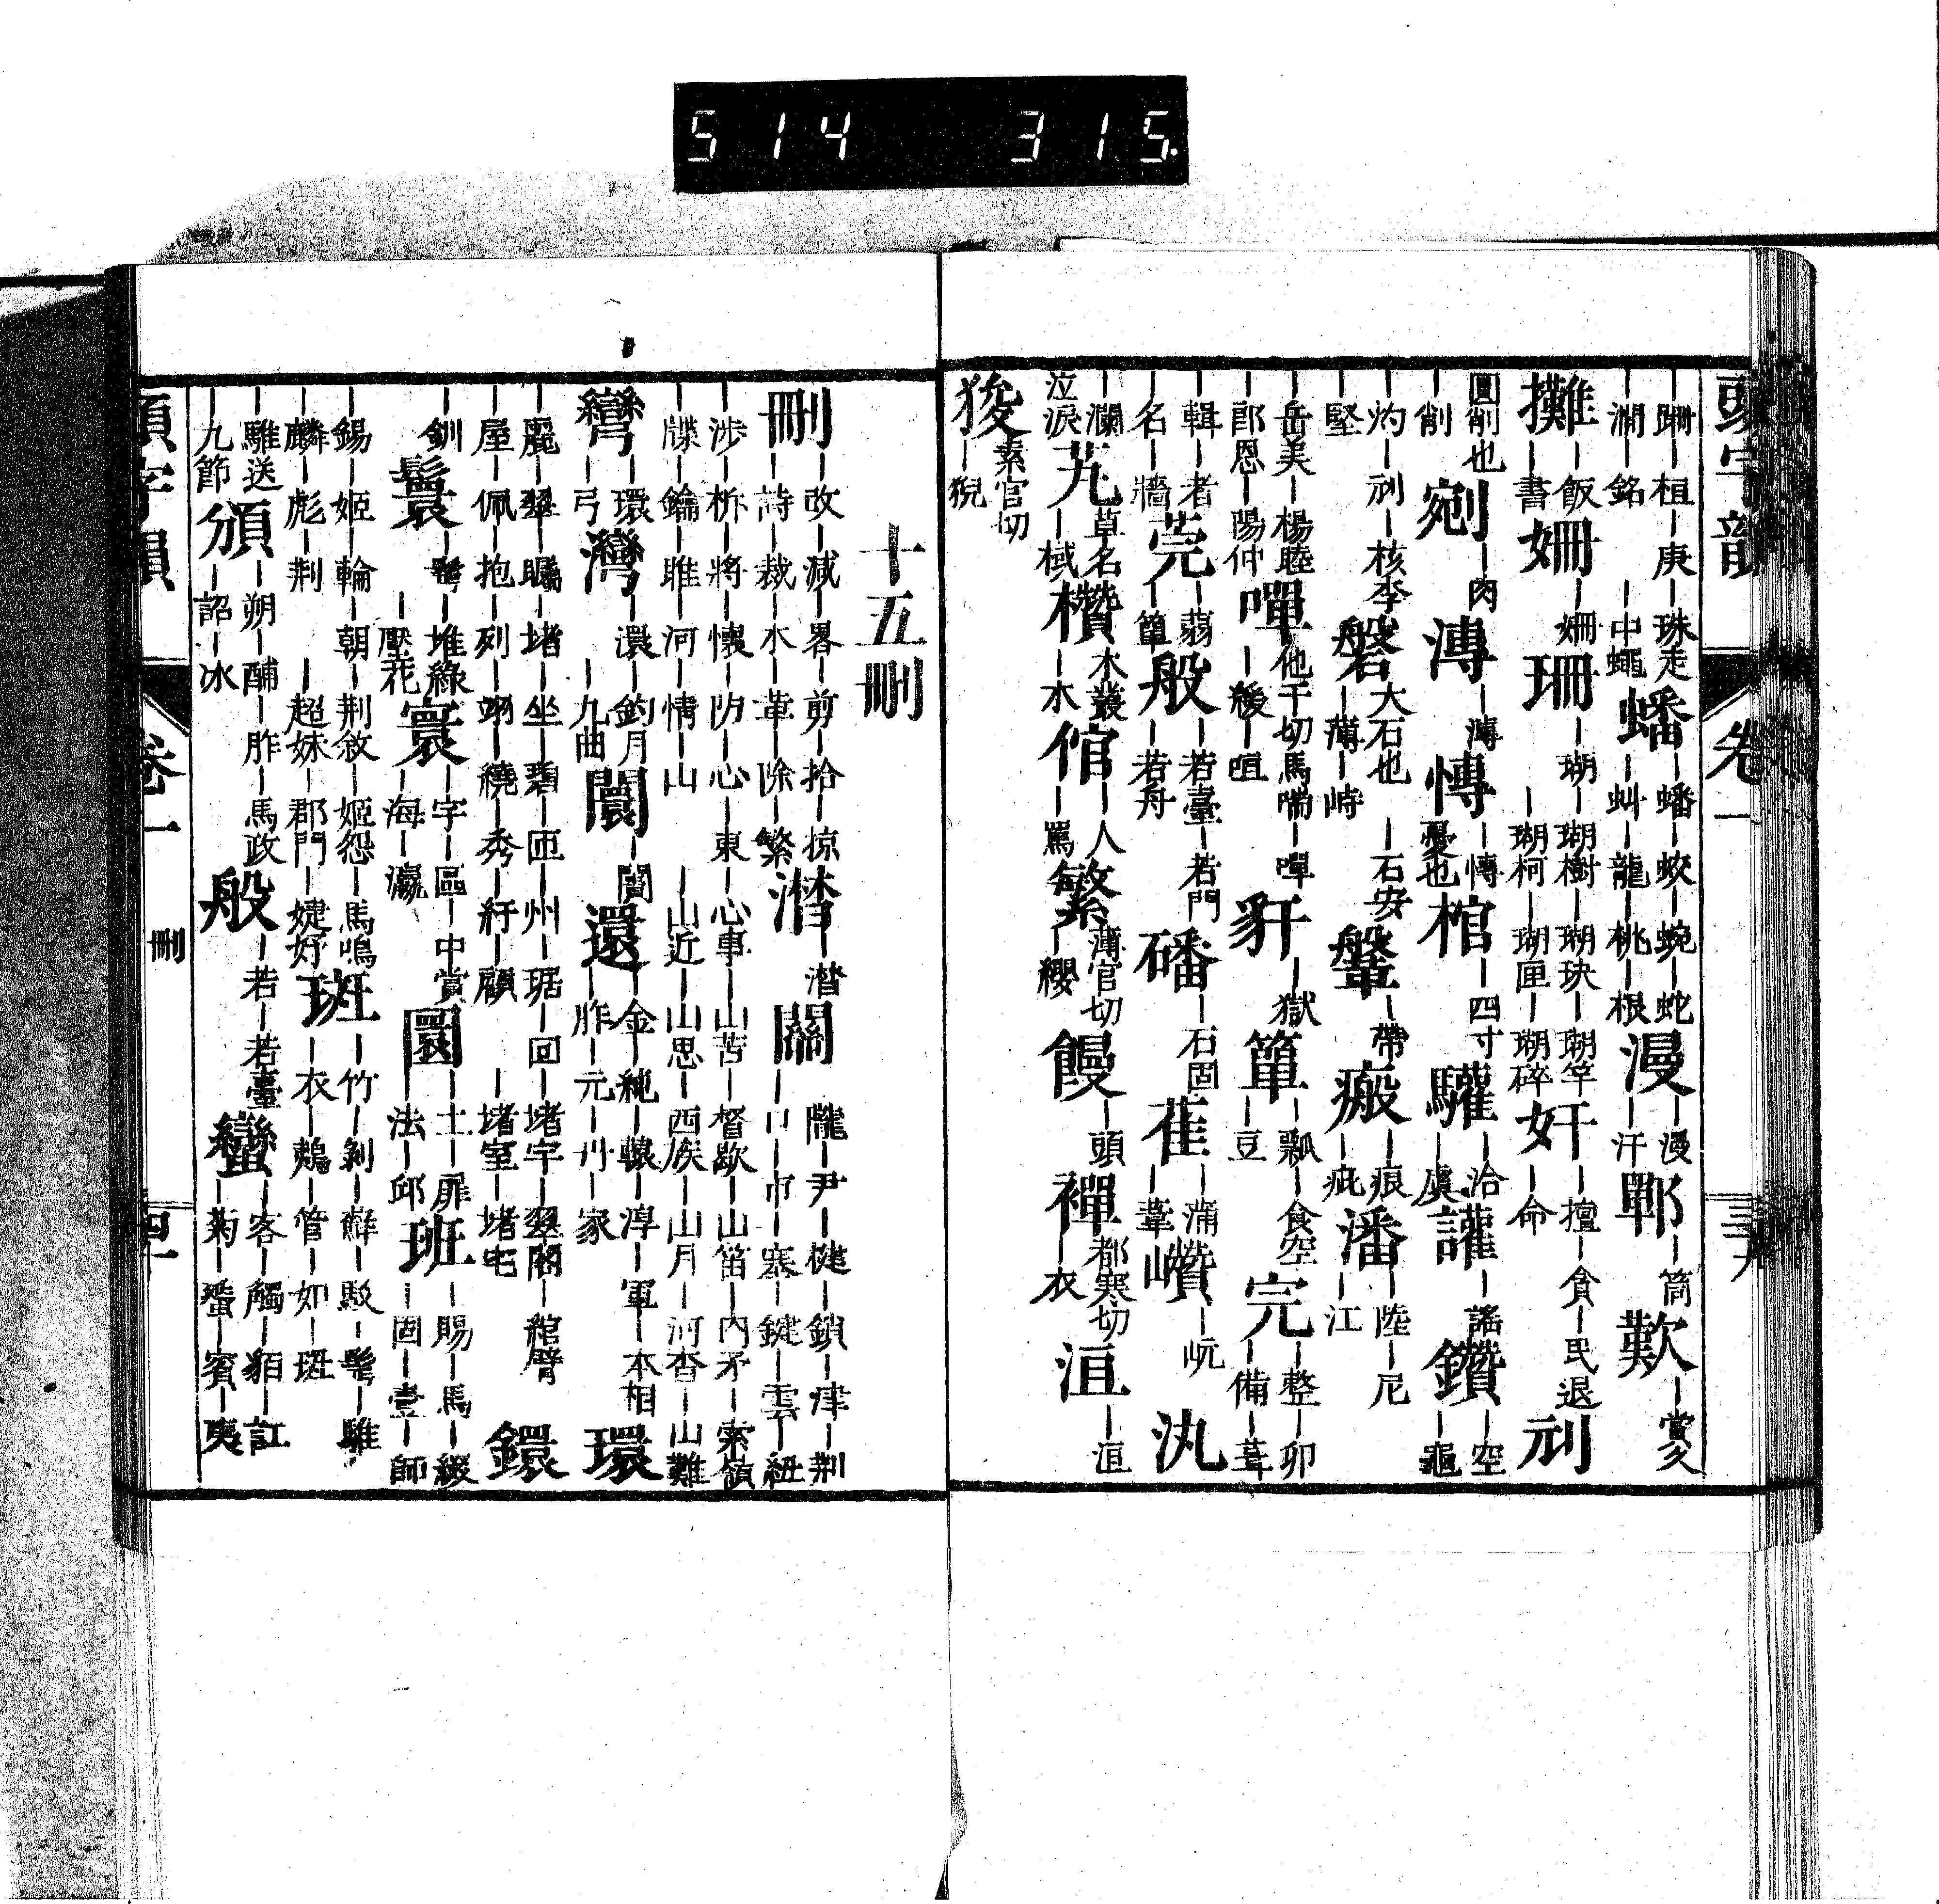 514 315
頭字韻 卷一 三十九
｜跚｜柤｜庚｜珠走 蟠｜蟠｜蛟｜蜿｜蛇 漫｜漫 鄲｜筒 歎｜賞久
｜澗｜銘 ｜中蠅 ｜虯｜龍｜桃｜根 ｜汗
攤｜飯 姍｜姍 珊｜瑚｜瑚樹｜瑚玦｜瑚竿 奸｜擅｜貪｜民退 刓
｜書 ｜瑚柯｜瑚匣｜瑚碎 ｜命
｜圓削也 剜｜肉 漙｜漙 慱｜慱 棺｜四寸 驩｜洽 讙｜謠 鑽｜空
｜削 憂也 ｜虞 ｜龜
｜灼｜刓｜核李 磐大石也｜石安 鞶｜帶 瘢｜痕 潘｜陸｜尼
｜堅 ｜薄｜峙 ｜疵 ｜江
｜岳美｜楊睦 嘽他干切馬喘｜嘽 豻｜獄 簞｜瓢｜食空 完｜整｜卵
｜郎恩｜陽仲 ｜緩｜咺 ｜豆 ｜備｜葺
｜輯｜者 莞｜蒻 般｜若臺｜若門 磻｜石固 萑｜滿 巑｜岏 汍
｜名｜牆 ｜簟 ｜若舟 ｜葦
｜瀾 芄草名 欑木叢 倌｜人 繁薄官切 饅｜頭 襌都寒切 洹｜洹
泣淚 ｜棫 ｜水 ｜罵 ｜纓 ｜衣
狻素官切
｜猊
十五刪
刪｜改｜減｜畧｜剪｜拾｜掠 潸｜潸 關｜隴｜尹｜楗｜鎖｜津｜荆
｜詩｜裁｜水｜革｜除｜繁 ｜口｜市｜塞｜鍵｜雲｜紐
｜涉｜柝｜將｜懷｜防｜心｜東｜心事｜山苦｜督歇｜山笛｜內矛｜索嶺
｜牒｜鑰｜雎｜河｜情｜山 ｜山近｜山思｜西族｜山月｜河杳｜山難
彎｜環 灣｜澴｜釣月 闤｜闠 還｜金｜純｜轅｜淳｜軍｜本相 環
｜弓 ｜九曲 ｜胙｜元｜丹｜家
｜麗｜翠｜曯｜堵｜坐｜碧｜匝｜州｜琚｜回｜堵宇｜翠閣｜綰臂 鐶
｜屋｜佩｜抱｜列｜翊｜繞｜秀｜紆｜顧 ｜堵室｜堵宅
｜釧 鬟｜髻｜堆綠 寰｜宇｜區｜中賞 圜｜土｜扉 班｜賜｜馬｜綴
｜壓花 ｜海｜瀛 ｜法｜邱 ｜固｜壹｜師
｜錫｜姬｜輪｜朝｜荆敘｜姬怨｜馬鳴 斑｜竹｜剝｜鮮｜駁｜髦｜騅
｜麟｜彪｜荆 ｜超妹｜郡門｜婕妤 ｜衣｜鵝｜管｜如｜斑
｜騅送 頒｜朔｜酺｜胙｜馬政 般｜若｜若臺 蠻｜客｜觸｜貊｜訌
｜九節 ｜詔｜冰 ｜菊｜蜑｜賓｜夷
頭字韻 卷一 刪 四十